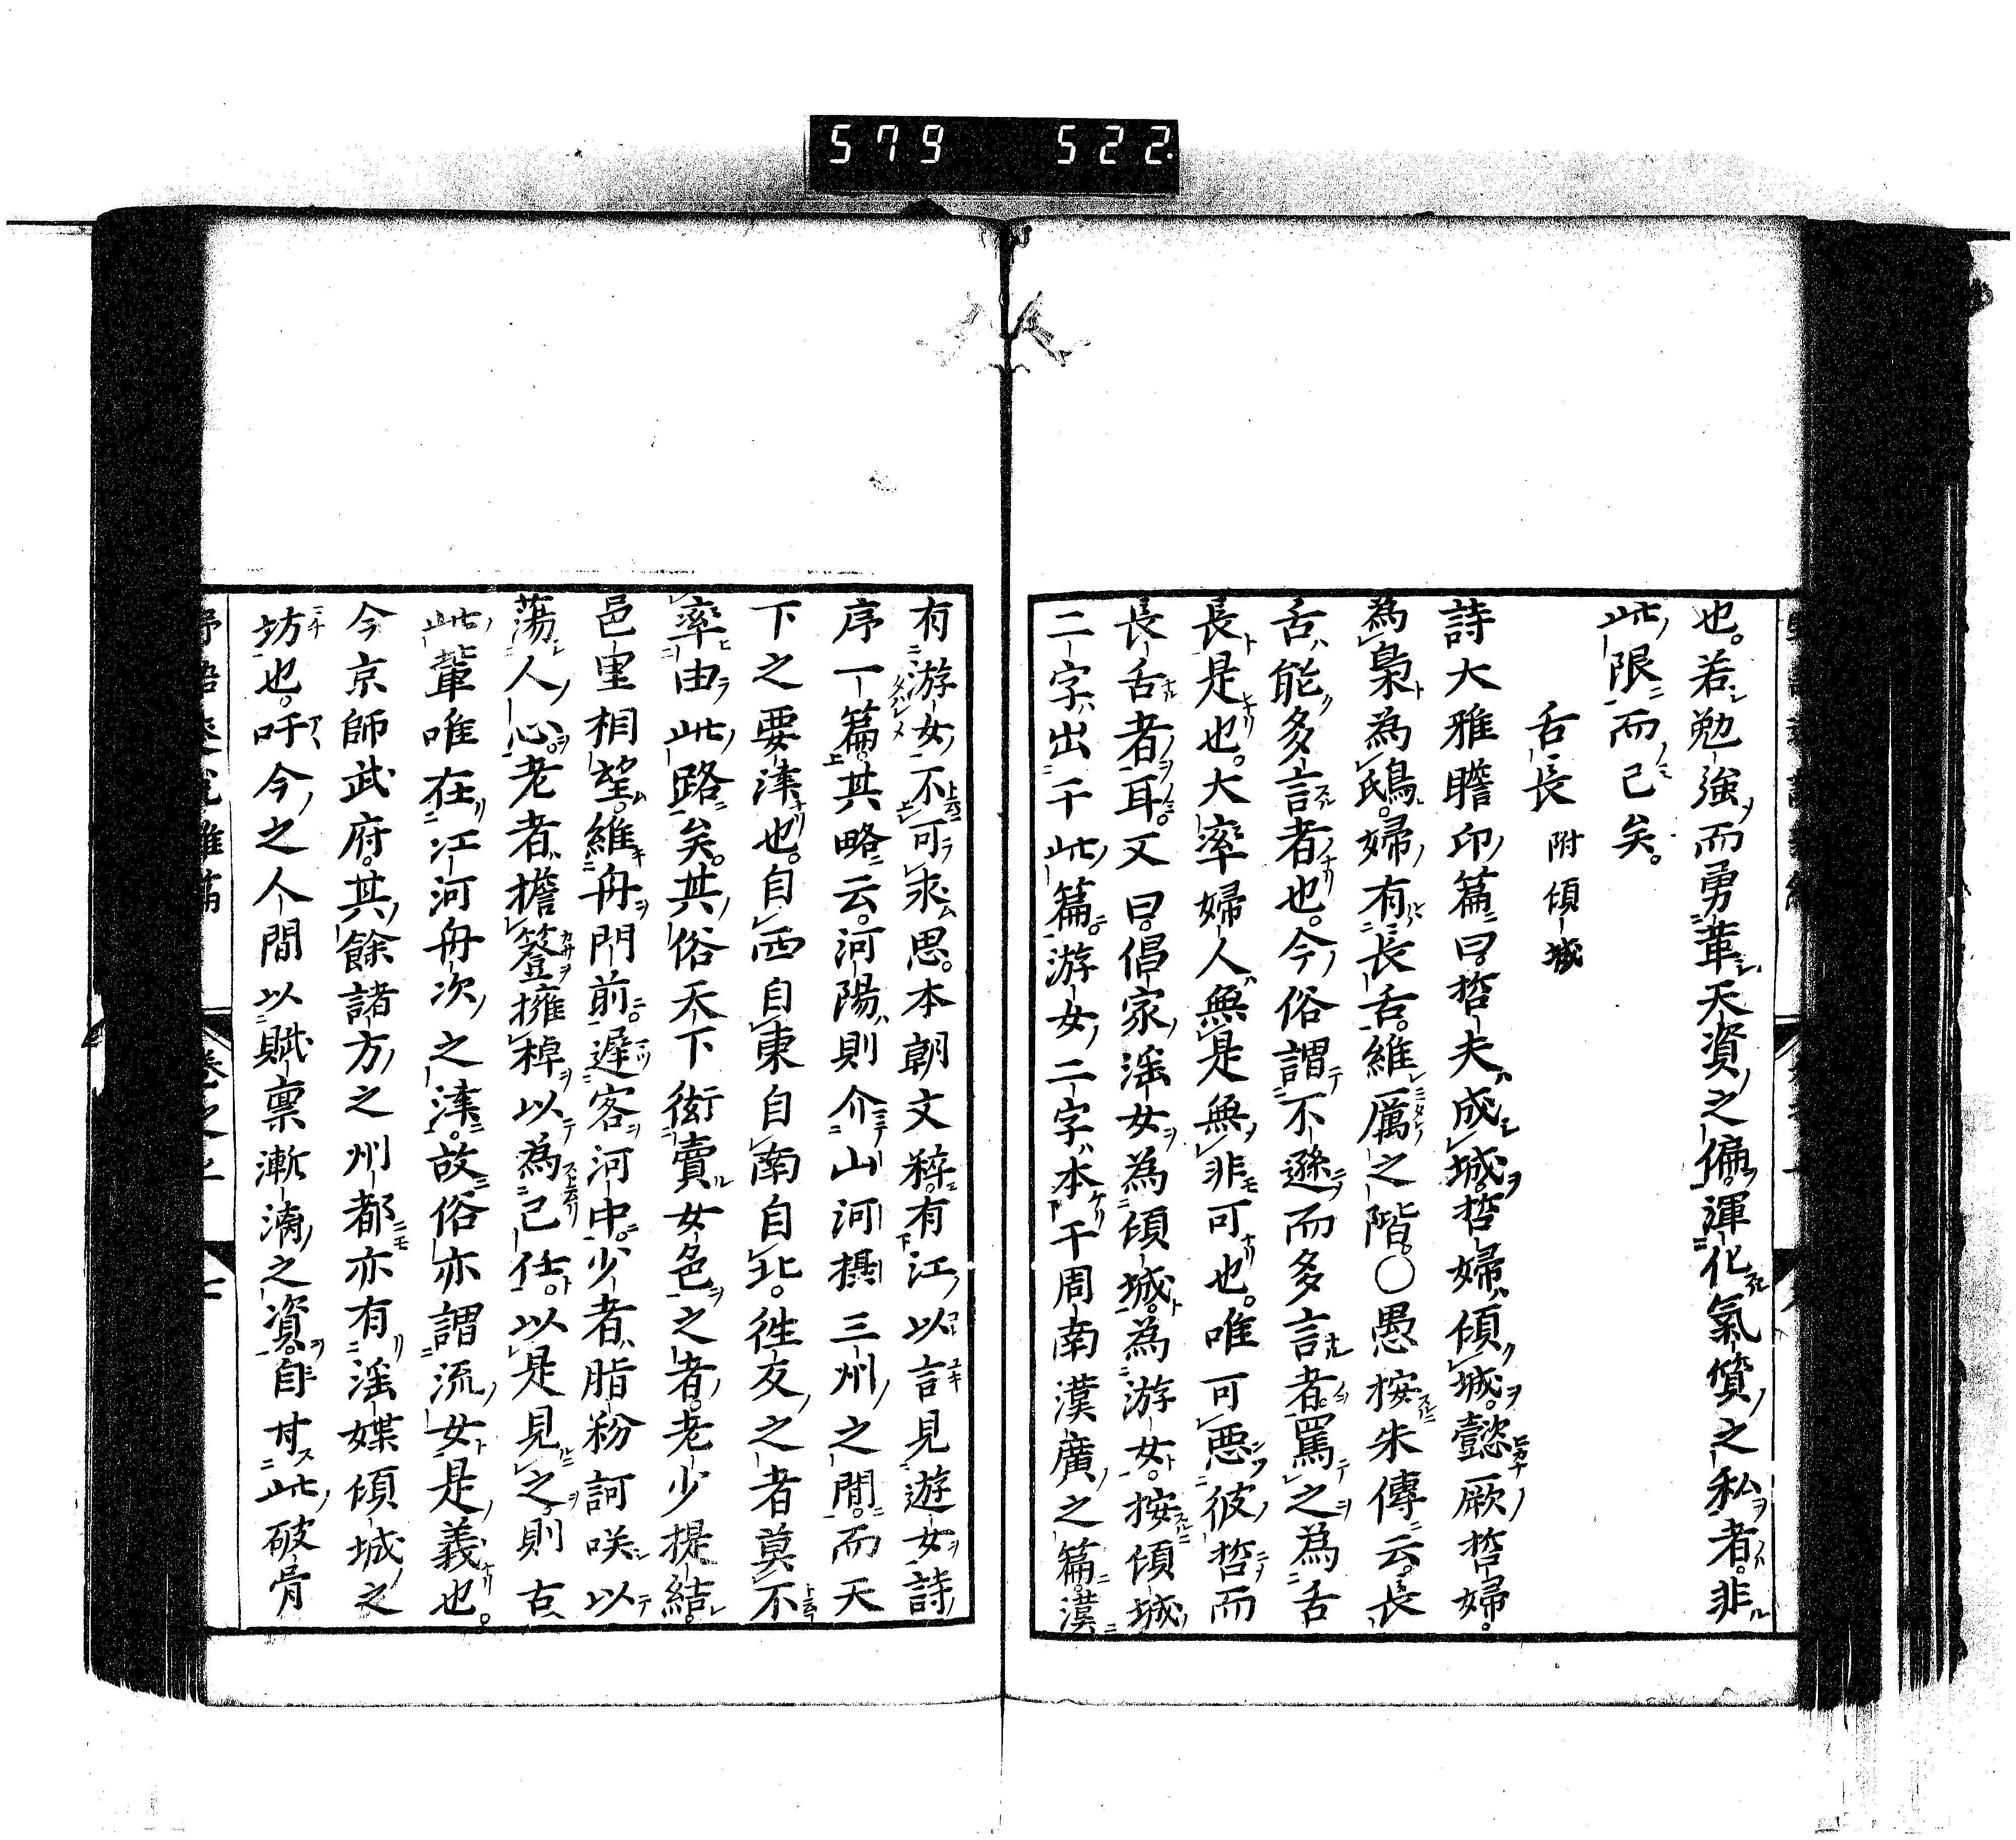 579 522.
也。若勉強而勇革天資之偏。渾化氣質之私者。非
此限而已矣。
舌長 附傾城
詩大雅瞻卬篇曰哲夫成城。哲婦傾城。懿厥哲婦。
為梟為鴟。婦有長舌。維厲之階。○愚按朱傳云。長
舌能多言者也。今俗謂不遜而多言者。罵之為舌
長是也。大率婦人無是無非可也。唯可惡彼哲而
長舌者耳。又曰。倡家淫女為傾城。為游女。按傾城
二字出于此篇。游女二字本于周南漢廣之篇。漢
有游女不可求思。本朝文粹。有江以言見遊女詩
序一篇。其略云。河陽則介山河攝三州之間。而天
下之要津也。自西自東自南自北。往反之者莫不
率由此路矣。其俗天下衒賣女色之者。老少提結。
邑里相望。維舟門前。遲客河中。少者脂粉訶咲以
蕩人心。老者擔簦擁棹以為己任。以是見之。則古
此輩唯在江河舟次之津。故俗亦謂流女是義也。
今京師武府。其餘諸方之州都亦有淫媒傾城之
坊也。吁今之人間以賦稟漸漓之資。自甘此破骨